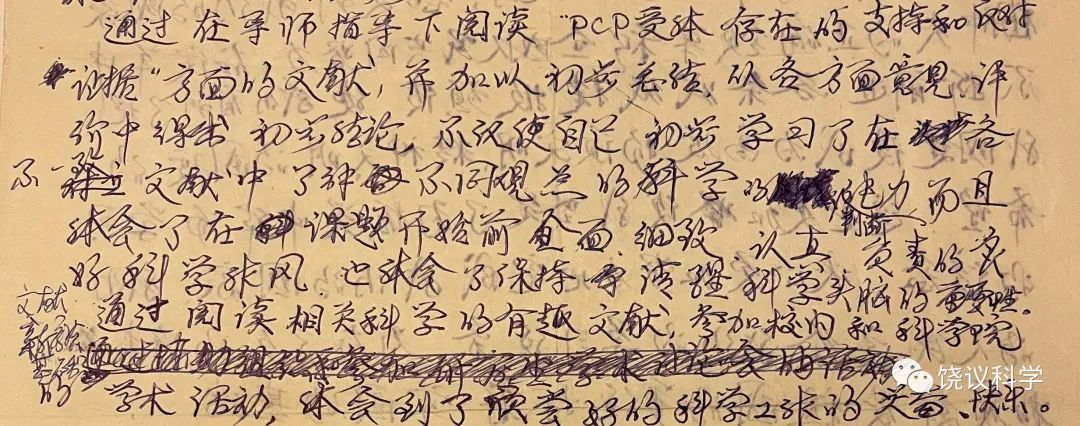 通过在导师指导下阅读“PCP受体存在的支持和反对
证据”方面的文献，并加以初步总结，从各方面意见评
价中得出初步结论，不仅使自己初步学习了在各
不 文献中了解不同观点的科学的 能力，而且
判断
体会了在课题开始前全面、细致、认真负责的良
好科学作风。也体会了保持清醒科学头脑的重要性。
通过阅读相关科学的有趣文献，参加校内和科学院
文献
的
学术活动，体会到了 好的科学工作的 、快乐。
饶议科学